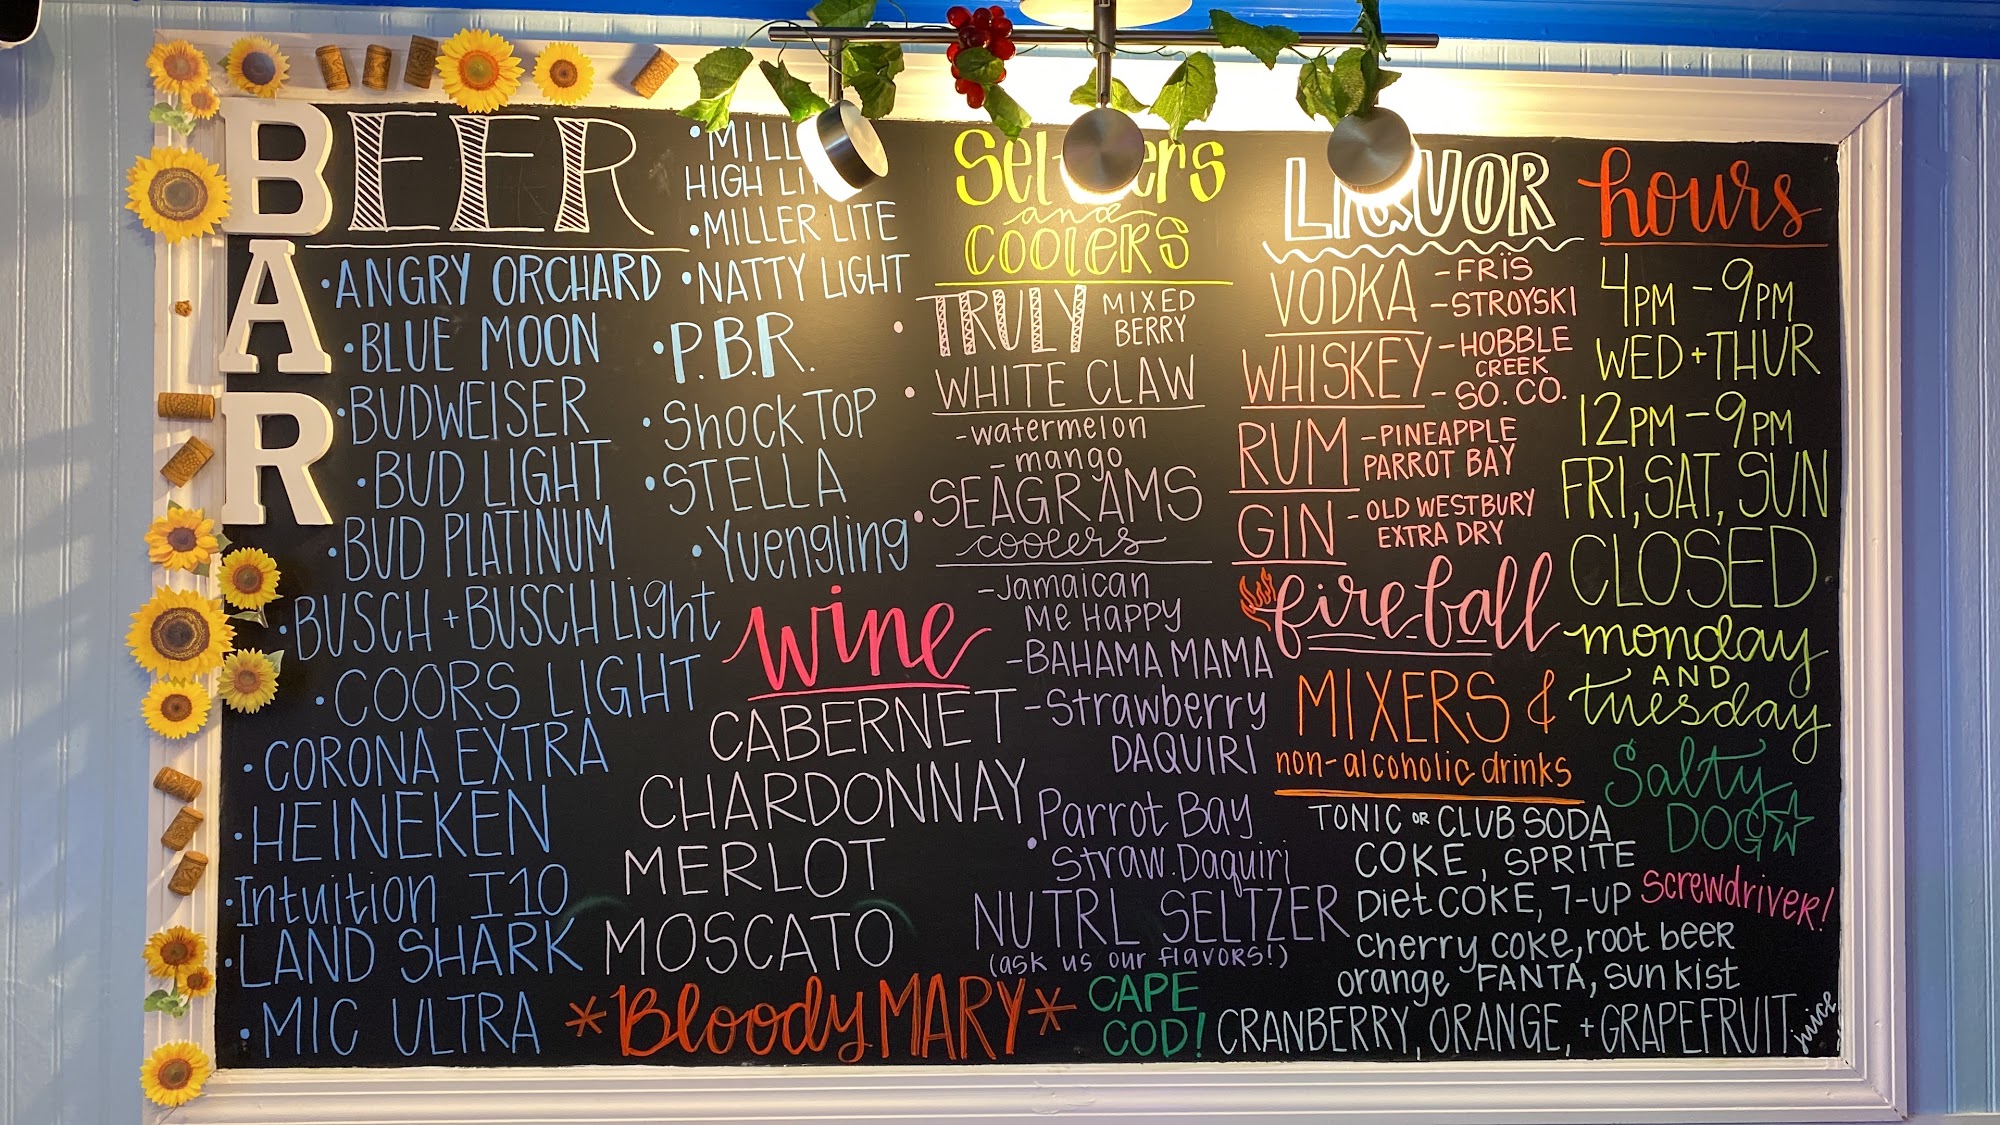 BAR
BEER
• ANGRY ORCHARD
• BLUE MOON
• BUDWEISER
• BUD LIGHT
• BUD PLATINUM
• BUSCH + BUSCH Light
• COORS LIGHT
• CORONA EXTRA
• HEINEKEN
• Intuition I10
• LAND SHARK
• MIC ULTRA
HIGH
• MILLER LITE
• NATTY LIGHT
• P.B.R.
• Shock TOP
• STELLA
• Yuengling
wine
CABERNET
CHARDONNAY
MERLOT
MOSCATO
*Bloody MARY*
and
COOLERS
• TRULY MIXED
BERRY
• WHITE CLAW
- watermelon
- mango
• SEAGRAMS
coolers
- Jamaican
Me Happy
- BAHAMA MAMA
- Strawberry
DAQUIRI
• Parrot Bay
Straw. Daquiri
NUTRL SELTZER
(ask us our flavors!)
CAPE
COD!
LIQUOR
VODKA - FRÏS
- STROYSKI
WHISKEY - HOBBLE
CREEK
- SO. CO.
RUM - PINEAPPLE
PARROT BAY
GIN - OLD WESTBURY
EXTRA DRY
fireball
MIXERS &
non-alcoholic drinks
TONIC OR CLUB SODA
COKE, SPRITE
Diet COKE, 7-UP
cherry coke, root beer
orange FANTA, sunkist
CRANBERRY, ORANGE, + GRAPEFRUIT juice
hours
4PM - 9PM
WED + THUR
12PM - 9PM
FRI, SAT, SUN
CLOSED
monday
AND
tuesday
Salty
DOG
Screwdriver!